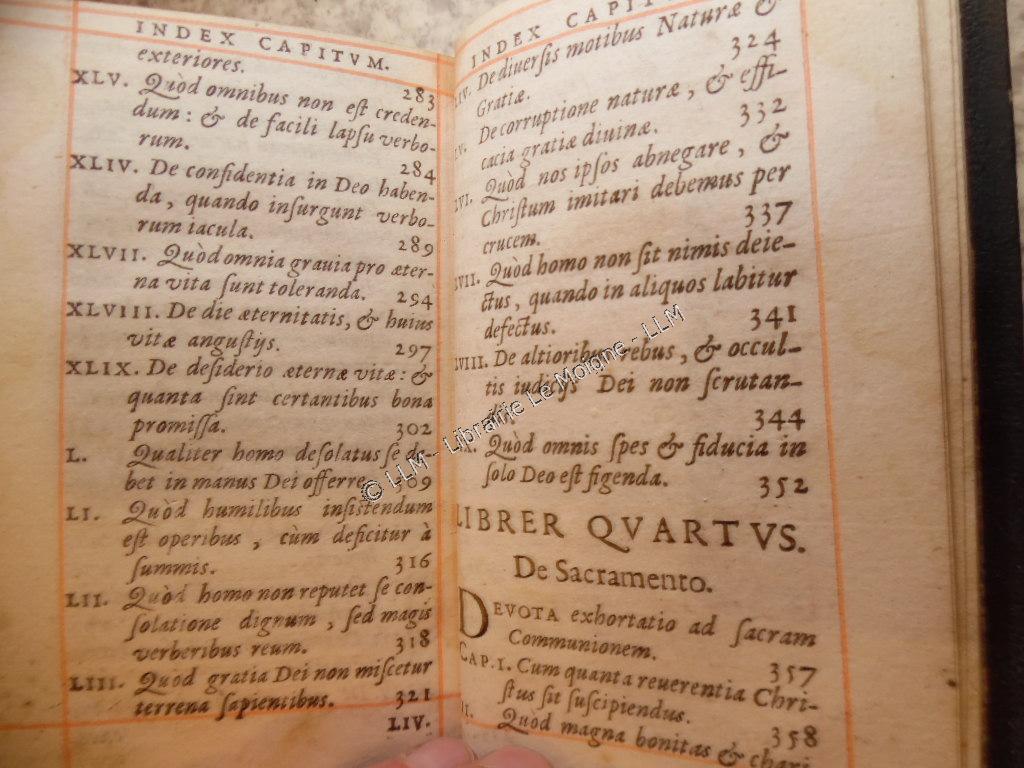 INDEX CAPITVM.
exteriores. 283
XLV. Quòd omnibus non eſt creden-
dum: & de facili lapſu verbo-
rum. 284
XLIV. De confidentia in Deo haben-
da, quando inſurgunt verbo-
rum iacula. 289
XLVII. Quòd omnia grauia pro æter-
na vita ſunt toleranda. 294
XLVIII. De die æternitatis, & huius
vitæ anguſtijs. 297
XLIX. De deſiderio æternæ vitæ: &
quanta ſint certantibus bona
promiſſa. 302
L. Qualiter homo deſolatus ſe de-
bet in manus Dei offerre. 309
LI. Quòd humilibus inſiſtendum
eſt operibus, cùm deficitur à
ſummis. 316
LII. Quòd homo non reputet ſe con-
ſolatione dignum, ſed magis
verberibus reum. 318
LIII. Quod gratia Dei non miſcetur
terrena ſapientibus. 321
LIV.
INDEX CAPITV
LIV. De diuerſis motibus Naturæ &
Gratiæ. 324
LV. De corruptione naturæ, & effi-
cacia gratiæ diuinæ. 332
LVI. Quòd nos ipſos abnegare, &
Chriſtum imitari debemus per
crucem. 337
LVII. Quòd homo non ſit nimis deie-
ctus, quando in aliquos labitur
defectus. 341
LVIII. De altioribus rebus, & occul-
tis iudicijs Dei non ſcrutan-
344
IX. Quòd omnis ſpes & fiducia in
ſolo Deo eſt figenda. 352
LIBRER QVARTVS.
De Sacramento.
DEVOTA exhortatio ad ſacram
Communionem. 357
CAP. I. Cum quanta reuerentia Chri-
ſtus ſit ſuſcipiendus. 358
II. Quod magna bonitas & chari
© LLM - Librairie Le Moigne - LLM